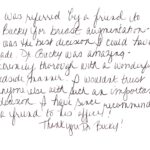 was referred by a friend to
Bucky for breast augmentation.
was the best decision I could have
ade. Dr. Bucky was amazing -
tremely thorough with a wonderful
edside manner. I wouldn't trust
nyone else with such an important
decision. I have since recommend
a friend to his office!
Thank you Dr. Bucky!